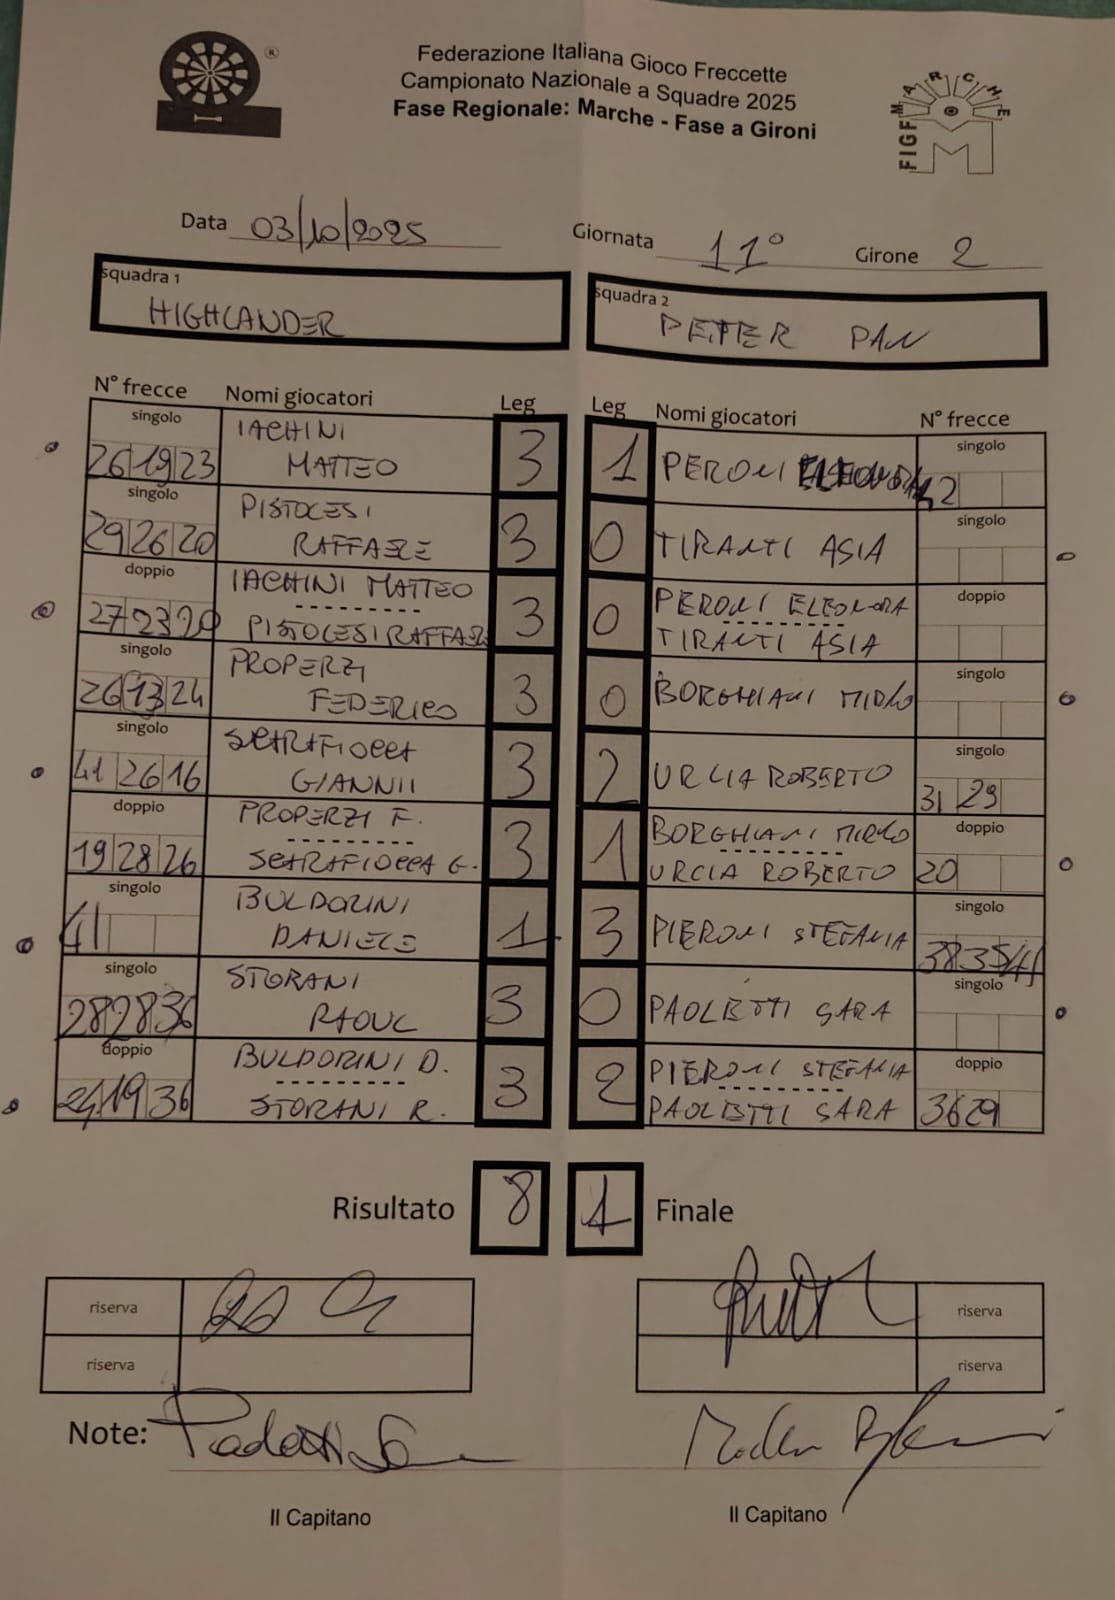 Federazione Italiana Gioco Freccette
Campionato Nazionale a Squadre 2025
Fase Regionale: Marche - Fase a Gironi
®
MARCHE
FIGF M
Data 03/10/2025 Giornata 11° Girone 2
squadra 1 squadra 2
HIGHLANDER PETTER PAN
N° frecce Nomi giocatori Leg Leg Nomi giocatori N° frecce
singolo IACHINI singolo
26 19 23 MATTEO 3 1 PERONI ELEONORA 42
singolo PISTOLESI singolo
29 26 20 RAFFAELE 3 0 TIRANTI ASIA
doppio IACHINI MATTEO PERONI ELEONORA doppio
27 23 20 PISTOLESI RAFFAELE 3 0 TIRANTI ASIA
singolo PROPERZI singolo
26 13 24 FEDERICO 3 0 BORGHIANI MIRLO
singolo SERAFIOCCA singolo
41 26 16 GIANNII 3 2 URCIA ROBERTO 31 29
doppio PROPERZI F. BORGHIANI MIRLO doppio
19 28 26 SERAFIOCCA G. 3 1 URCIA ROBERTO 20
singolo BULDORINI singolo
41 DANIELE 1 3 PIERONI STEFANIA 38 35 41
singolo STORANI singolo
28 28 36 RAOUL 3 0 PAOLETTI SARA
doppio BULDORINI D. PIERONI STEFANIA doppio
24 19 36 STORANI R. 3 2 PAOLETTI SARA 36 29
Risultato 8 1 Finale
riserva riserva
riserva riserva
Note: Paoletti Sa
Il Capitano Il Capitano